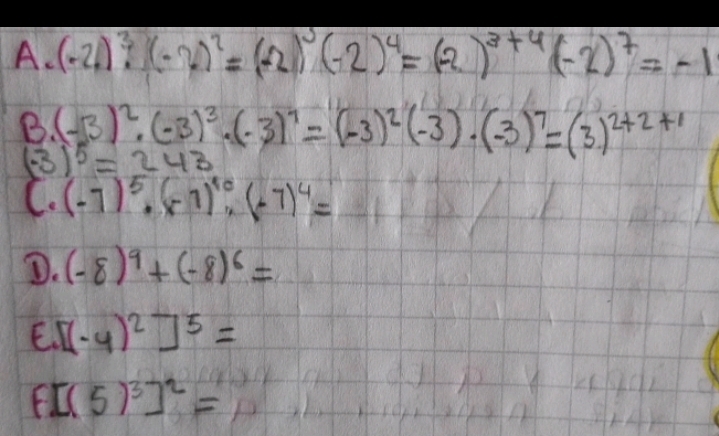 A. (-2)³ · (-2)² = (-2)³ (-2)⁴ = (-2)³⁺⁴ (-2)⁷ = -1
B. (-3)² · (-3)³ · (-3)¹ = (-3)² (-3) · (-3)⁷ = (3)²⁺²⁺¹
(-3)⁵ = 243
C. (-7)⁵ · (-7)¹⁰ : (-7)⁴ =
D. (-8)⁹ + (-8)⁶ =
E. [(-4)²]⁵ =
F. [(5)³]² =